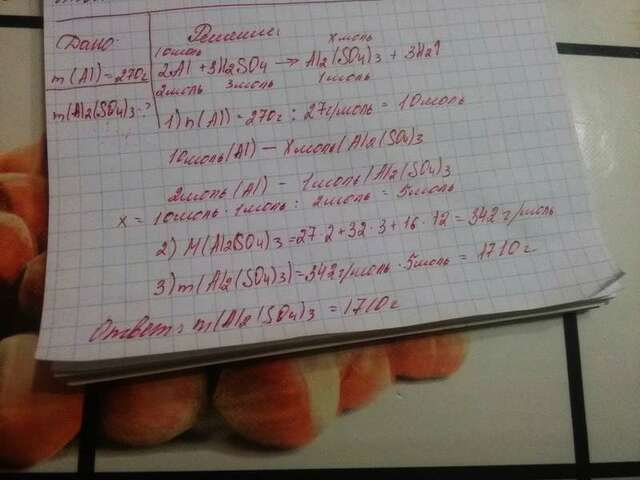 Дано
m(Al) = 270г
m(Al2(SO4)3-?
Решение:
10моль
xмоль
2Al + 3H2SO4 → Al2(SO4)3 + 3H2↑
2моль 3моль 1моль
1) n(Al) = 270г : 27г/моль = 10моль
10моль(Al) — Xмоль(Al2(SO4)3
2моль(Al) - 1моль(Al2(SO4)3
x = 10моль · 1моль : 2моль = 5моль
2) M(Al2SO4)3 = 27·2+32·3+16·12 = 342г/моль
3) m(Al2(SO4)3) = 342г/моль · 5моль = 1710г
Ответ: m(Al2(SO4)3 = 1710г